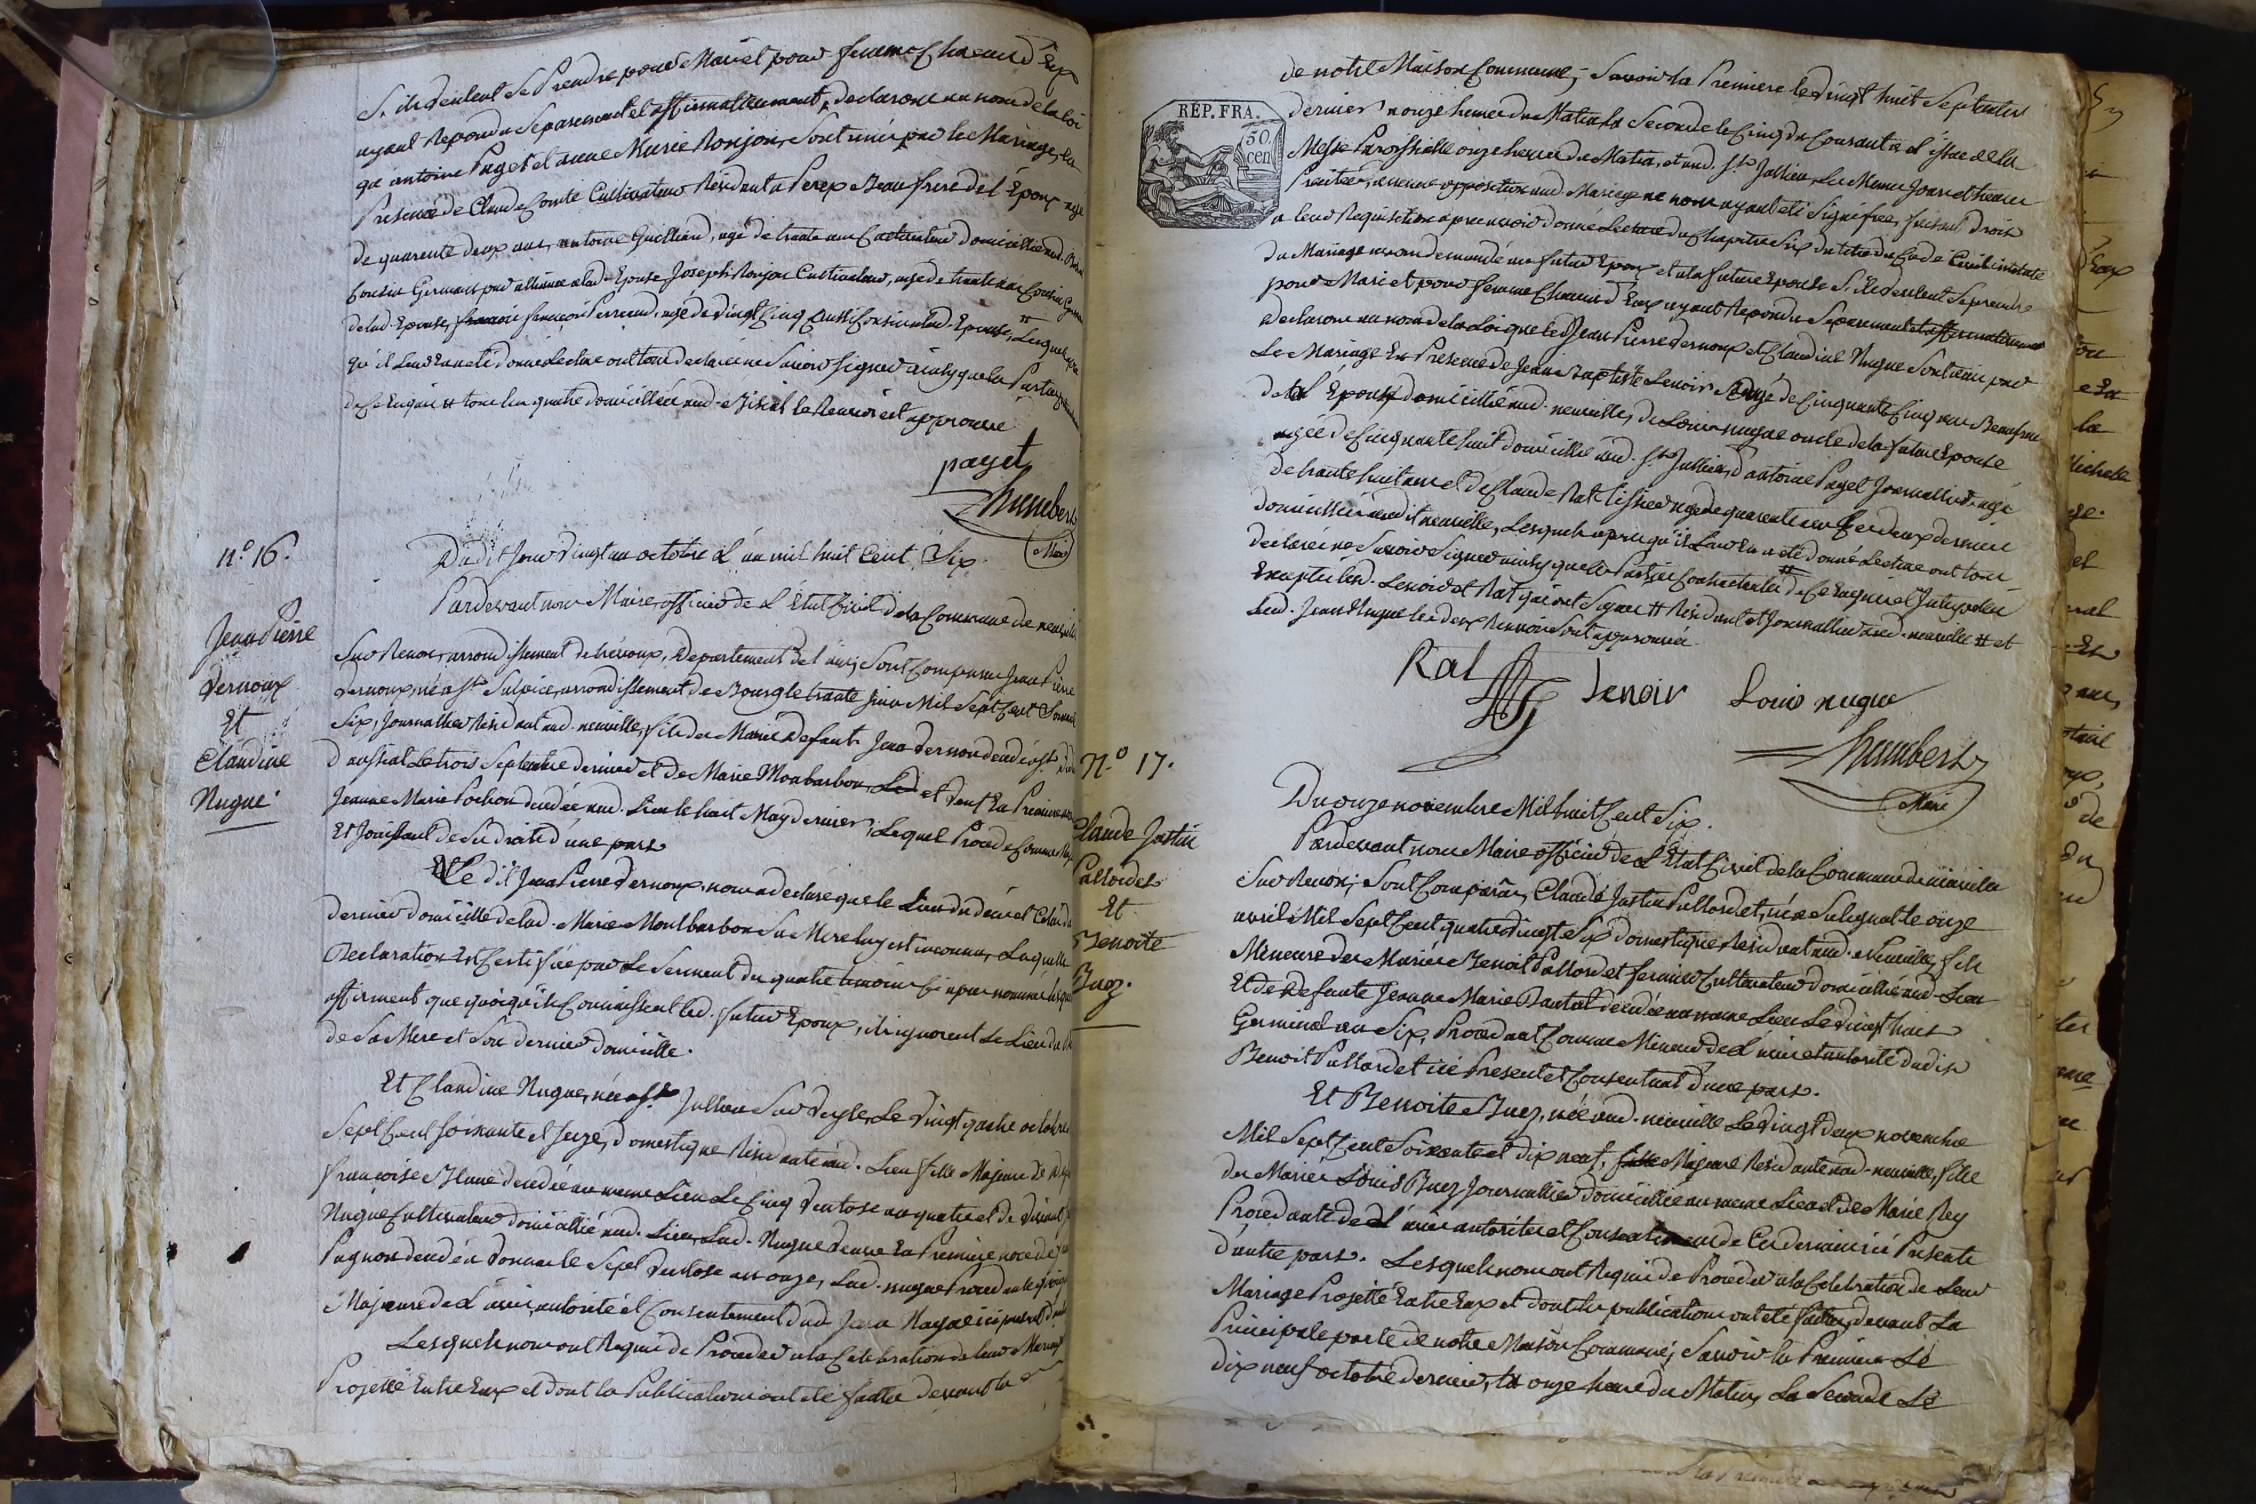 S'ils veulent se Prendre pour Mari et pour femme Chacun d'Eux
ayant Repondu Separement et affirmativement, declarons au nom de la loi
que antoine Paget et anne Marie Ronjon, Sont unis par le Mariage, en
Presence de Claude Comte Cultivateur Résidant a Perex Beaufrere de l'Epoux agé
de quarente deux ans, antoine Guilliard, agé de trante ans Cultivateur domicillié aud.
Cousin Germain par alliance alad. Epouse Joseph Ronjon Cultivateur, agé de trante ans Cousin Germain
delad. Epouse, francois Perraud, agé de vingt Cinq aussi Cousin alad. Epouse, # Lesquels apres
qu'il Leur En a eté donné Lecture ont tous declaré ne Savoir Signer ainsy que la Partie
de Ce Enquis # tous les quatre domicilliés aud. le Renvoi est approuvé
paget
Chambert
Maire
n.° 16.
Jean Pierre
Vernoux
Et
Claudine
Nugue
Dudit Jour vingt un octobre L'an mil huit Cent Six
Pardevant nous Maire officier de L'Etat Civil de la Commune de neuville
Sur Renon, arrondissement de trévoux, Departement de l'ain, Sont Comparus Jean Pierre
Vernoux, né a St Sulpice, arrondissement de Bourg le trante Juin Mil Sept Cent Soixante
Six, Journallier Résidant aud. neuville, fils des Mariés defunt Jean Vernoux decedé a St
Le trois Septembre dernier et de Marie Monbarbon, et veuf En Premiere noce
Jeanne Marie Pochon decedée aud. Lieu le huit May dernier, Lequel Procede Comme Majeur
Et Jouissant de Ses droits d'une part
Le dit Jean Pierre Vernoux, nous a declaré que le Lieu du décès et Celui du
dernier domicille de lad. Marie Montbarbon Sa Mere luy est inconnu, Laquelle
Declaration Est Certifiée par le Serment des quatre temoins Ci apres nommés lesquels
affirment que quoiqu'ils Connaissent led. futur Epoux, ils ignorent le Lieu du décès
de Sa Mere et Son dernier domicille.
Et Claudine Nugue, née a St Jullien Sur Veyle, Le vingt quatre octobre
Sept Cent Soixante et Seize, domestique Résidante aud. Lieu fille Majeure de
francoise Blanc decedée au meme Lieu Le Cinq Ventose an quatre et de vivant
Nugue Cultivateur domicillié aud. Lieu, Lad. Nugue veuve En Premiere noce de
Pagnon decedé a Vonnas le Sept Ventose an onze, Lad. nugue Procedante quoique
Majeure de L'avis, autorité et Consentement dud Jean Nugue ici present d'autre
Lesquels nous ont Requis de Proceder a la Celebration de leur Mariage
Projetté Entre Eux et dont les Publications ont eté faites devant la
RÉP. FRA.
50
cen
de notre Maison Commune, Savoir la Premiere le vingt huit Septembre
dernier a onze heures du Matin la Seconde le Cinq du Courant a l'issue de la
Messe Paroissialle onze heures du Matin, et aud. St Jullien, Les Memes Jours et heures
Precitées, aucune opposition aud. Mariage ne nous ayant eté Signifiée, faisant droit
a leur Requisition apres avoir donné Lecture du Chapitre Six du titre du Code Civil intitulé
du Mariage avons demandé au futur Epoux et a la future Epouse S'ils veulent Se prendre
pour Mari et pour femme Chacun d'Eux ayant Repondu Separement et affirmativement
declarons au nom de la Loi que led Jean Pierre Vernoux et Claudine Nugue Sont unis par
Le Mariage En Presence de Jean Baptiste Lenoir agé de Cinquante Cinq ans Beaufrere
de l'Epoux domicillié aud. neuville, de Louis nugue oncle de la future Epouse
agé de Cinquante huit domicillié aud. St Jullien, d'antoine Paget Journallier agé
de trante huit ans et de Claude Rat tissier agé de quarente ans Les deux derniers
domicilliés audit neuville, Lesquels apres qu'il Leur En a eté donné Lecture ont tous
declaré ne Savoir Signer ainsy que les Parties Contractantes # de Ce Enquis et Interpellés
Exceptés led. Lenoir et Rat qui ont Signés # Résidant et Journallier aud. neuville # et
Led. Jean Nugue les deux Renvois Sont approuvés
Rat
Lenoir
Louis nugue
Chambert
Maire
N.° 17.
Claude Justin
Pallordet
Et
Benoite
Buez.
Du onze novembre Mil huit Cent Six.
Pardevant nous Maire officier de L'Etat Civil de la Commune de neuville
Sur Renon; Sont Comparus, Claude Justin Pallordet, né a Sulignat le onze
avril Mil Sept Cent quatre vingt Six domestique Résidant aud. Neuville, fils
Mineur des Mariés Benoit Pallordet fermier Cultivateur domicillié aud. Lieu
Et de defunte Jeanne Marie decedée au meme Lieu Le vingt huit
Germinal an Six, Procedant Comme Mineur de L'avis et autorité dudit
Benoit Pallordet ici Present et Consentant d'une part.
Et Benoite Buez, née aud. neuville Le vingt deux novembre
Mil Sept Cent Soixante et dix neuf, Majeure Résidante aud. neuville, fille
des Mariés Louis Buez Journallier domicillié au meme Lieu et de Marie Rey
Procedante de L'avis autorité et Consentement de Ces derniers ici Presents
d'autre part. Lesquels nous ont Requis de Proceder a la Celebration de Leur
Mariage Projetté Entre Eux et dont les publications ont eté faites, devant La
Principale porte de notre Maison Commune, Savoir la Premiere Le
dix neuf octobre dernier, a onze heures du Matin, La Seconde Le